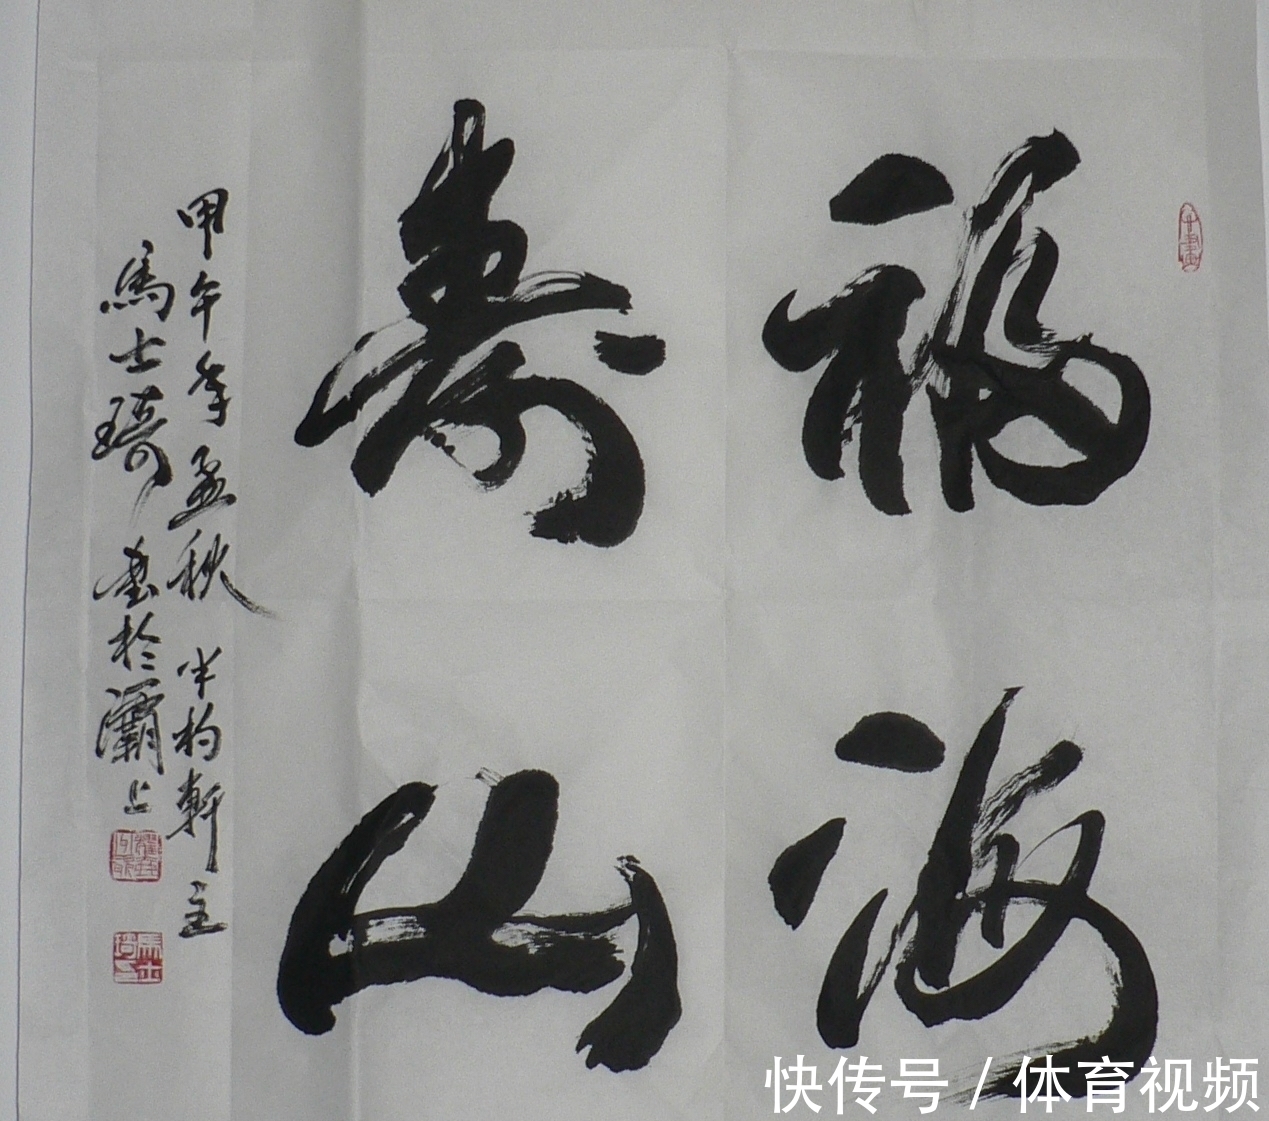 福海
寿山
甲午年孟秋 半杓軒主
馬士琦 書於灞上
快传号 / 体育视频